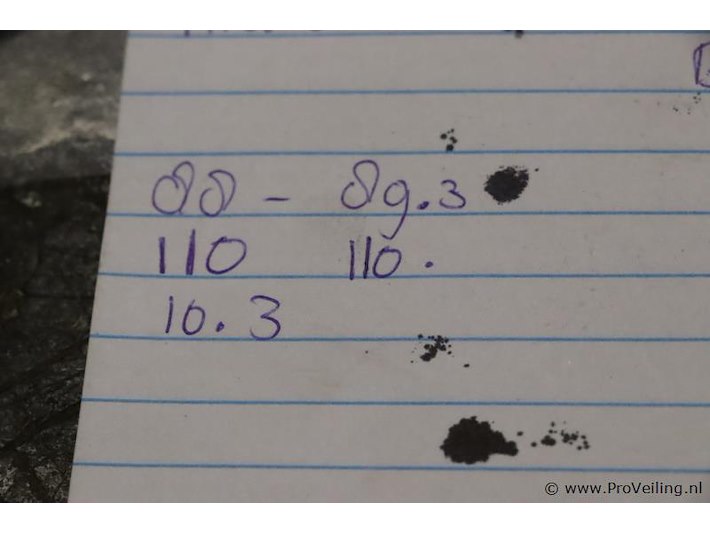 88 - 89.3
110 110.
10.3
© www.ProVeiling.nl